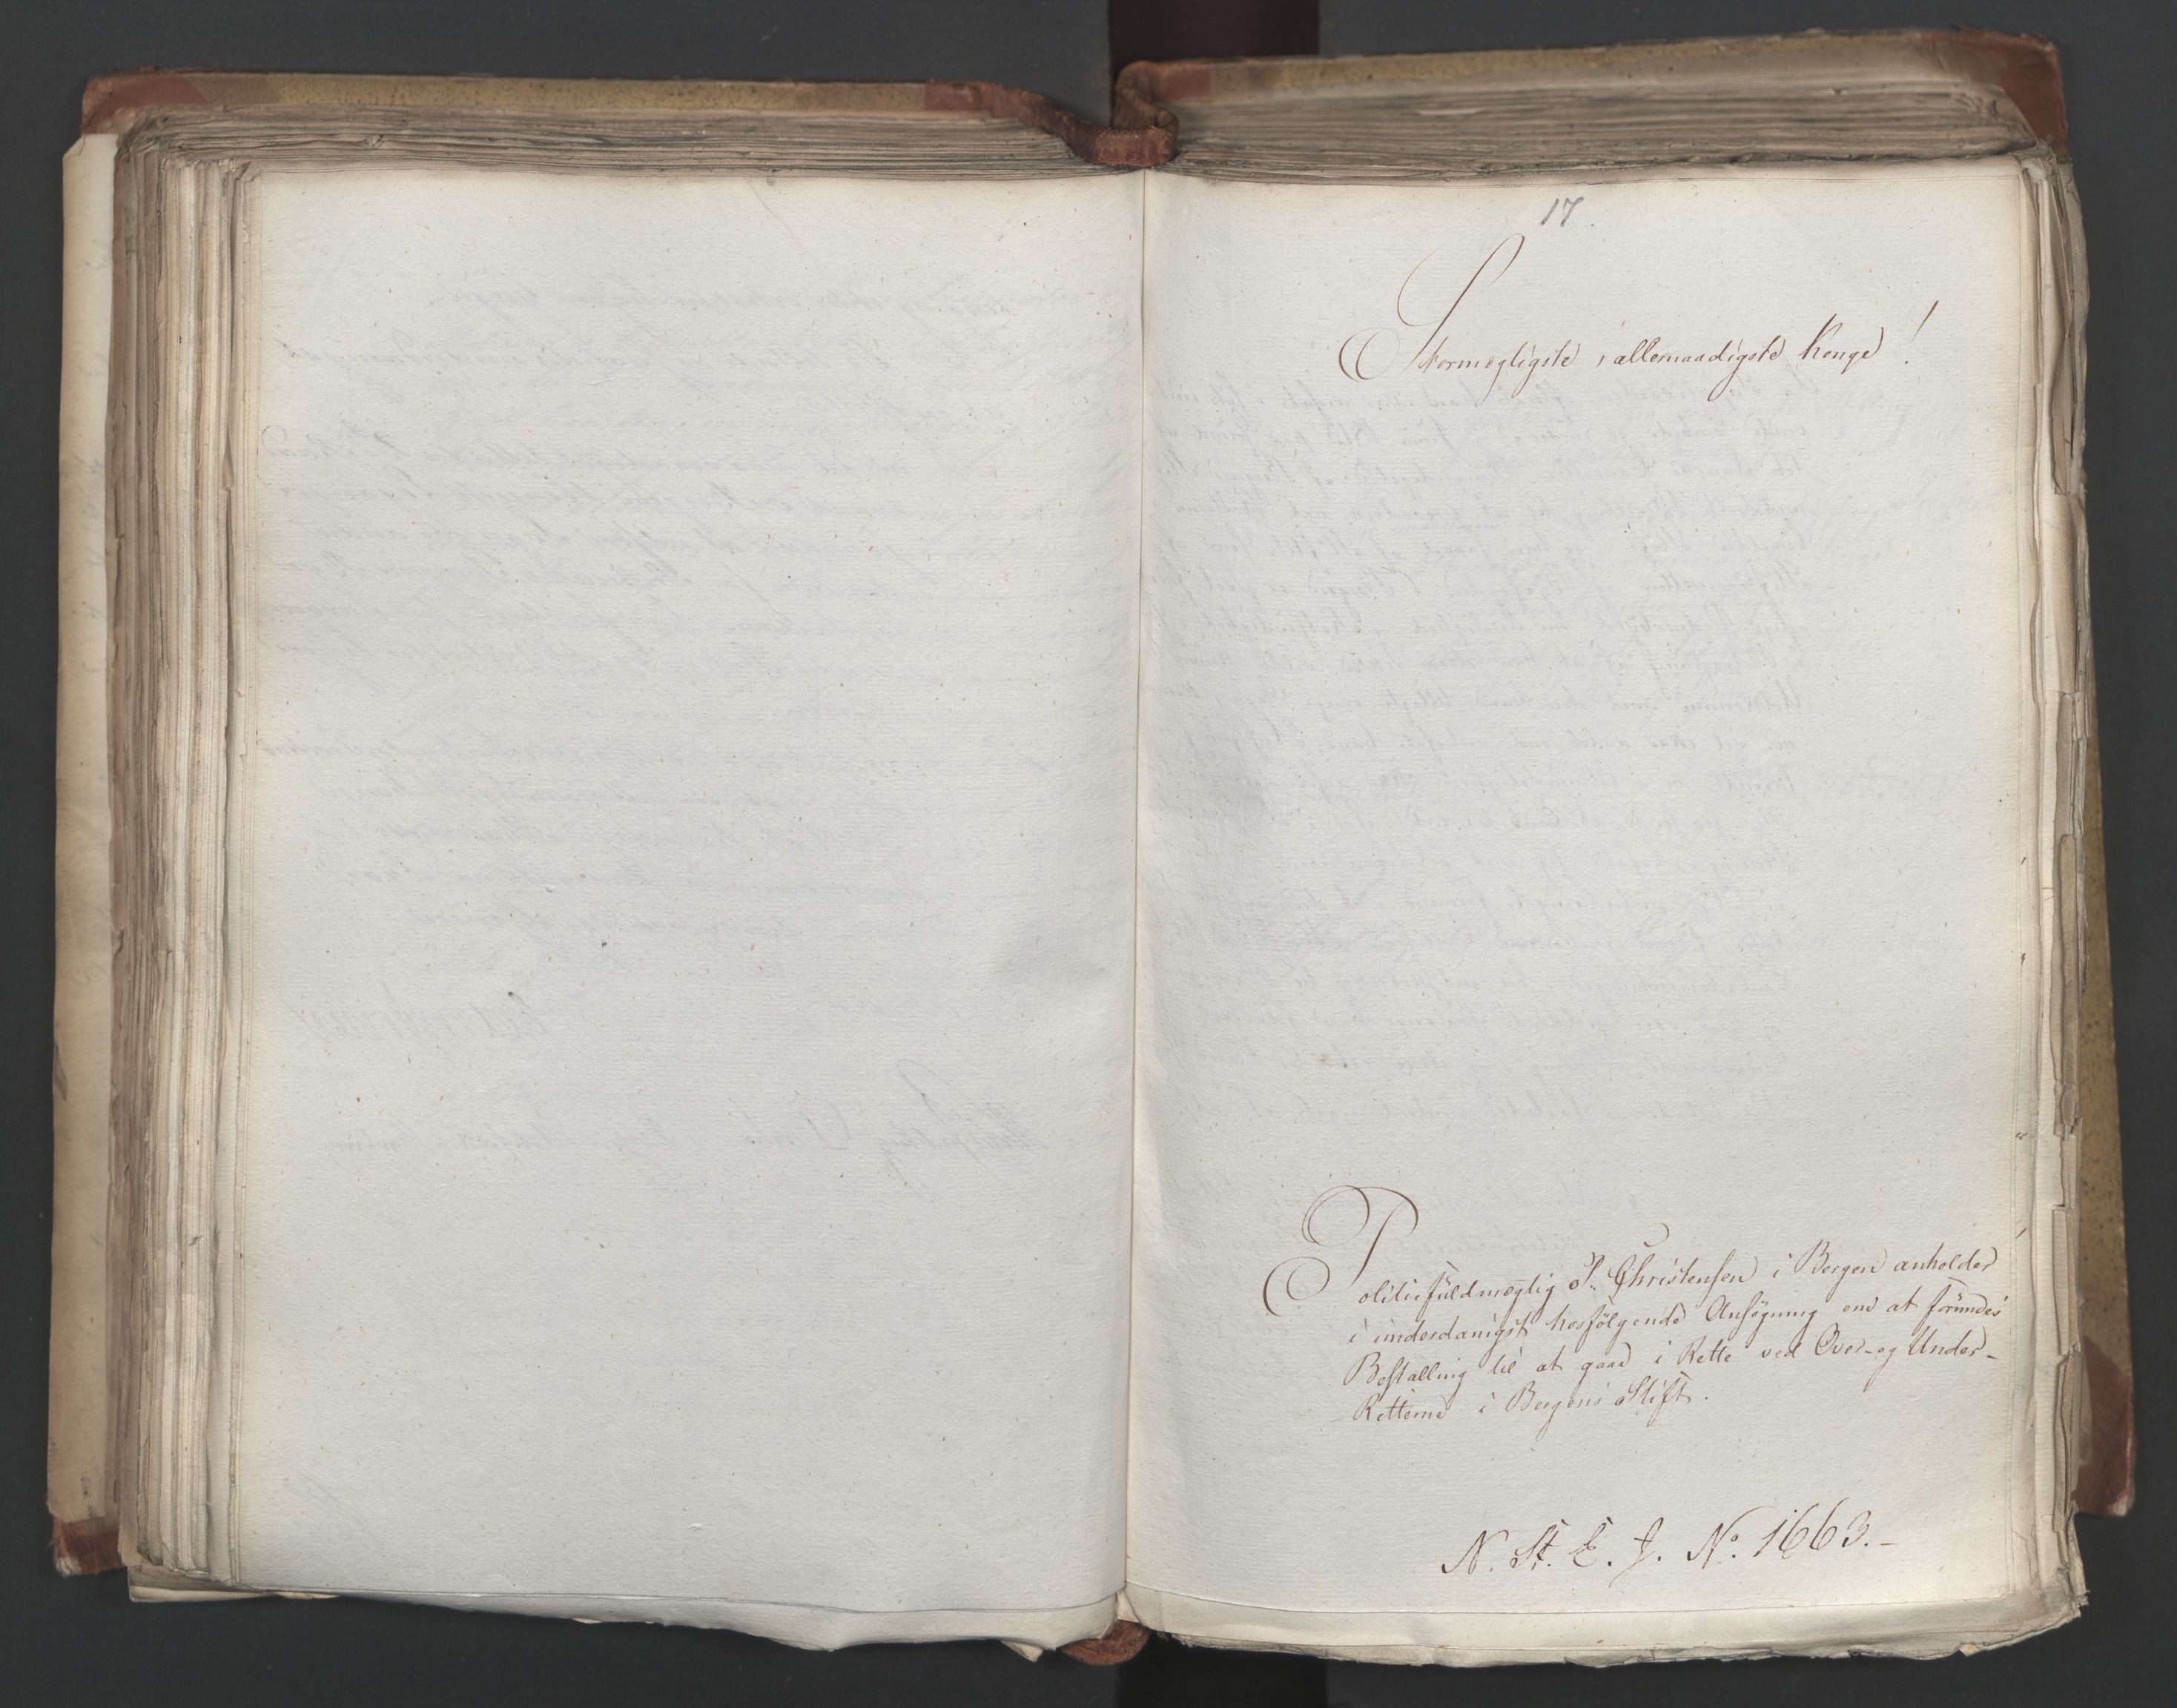 17.
Stormægtigste, allernaadigste Konge!
Politiefuldmægtig P. Christensen i Bergen anholder
i underdanigst hosfölgende Ansögning om at forundes
Bestalling til at gaae i Rette ved Over- og Under-
Retterne i Bergens Stift.
N. St. E. J. No. 1663.-